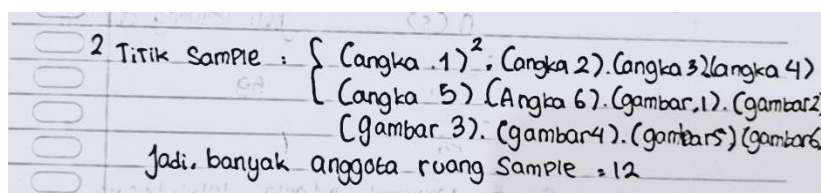 2 Titik Sample : { (angka .1)². (angka 2). (angka 3)(angka 4)
(angka 5) (Angka 6). (gambar,1). (gambar 2)
(gambar 3). (gambar4). (gambar5) (gambar6)
Jadi. banyak anggota ruang Sample = 12